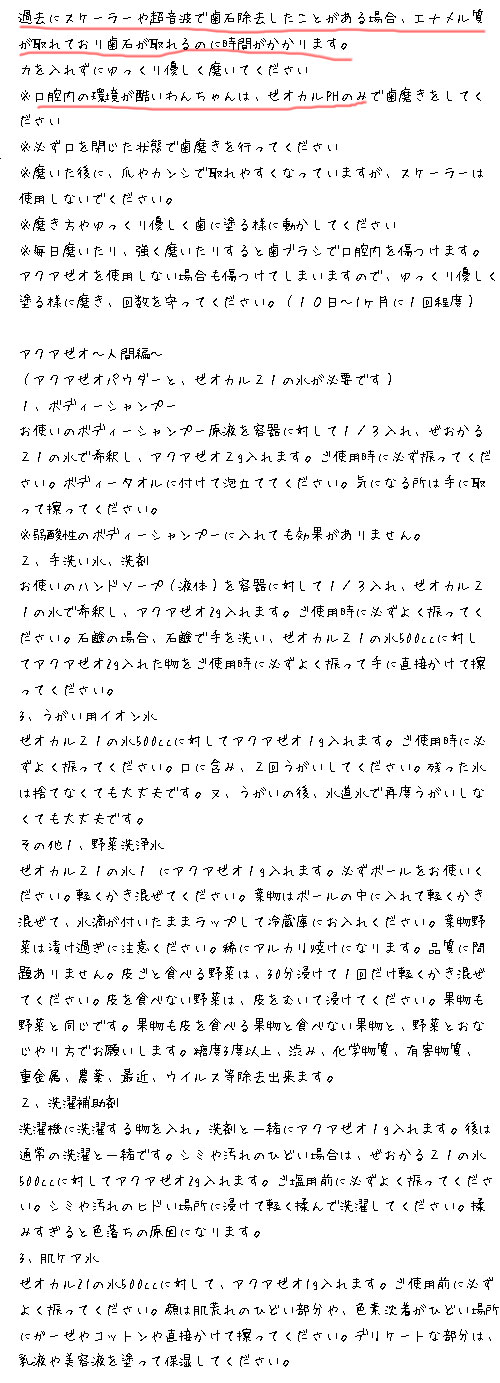 過去にスケーラーや超音波で歯石除去したことがある場合、エナメル質
が取れており歯石が取れるのに時間がかかります。
力を入れずにゆっくり優しく磨いてください
※口腔内の環境が酷いわんちゃんは、ゼオカルPHのみで歯磨きをしてく
ださい
※必ず口を閉じた状態で歯磨きを行ってください
※磨いた後に、爪やカンシで取れやすくなっていますが、スケーラーは
使用しないでください。
※磨き方やゆっくり優しく歯に塗る様に動かしてください
※毎日磨いたり、強く磨いたりすると歯ブラシで口腔内を傷つけます。
アクアゼオを使用しない場合も傷つけてしまいますので、ゆっくり優しく
塗る様に磨き、回数を守ってください。(10日～1ヶ月に1回程度)
アクアゼオ～人間編～
(アクアゼオパウダーと、ゼオカル21の水が必要です)
1、ボディーシャンプー
お使いのボディーシャンプー原液を容器に対して1/3入れ、ぜおかる
21の水で希釈し、アクアゼオ2g入れます。ご使用時に必ず振ってくだ
さい。ボディータオルに付けて泡立ててください。気になる所は手に取
って擦ってください。
※弱酸性のボディーシャンプーに入れても効果がありません。
2、手洗い水、洗剤
お使いのハンドソープ(液体)を容器に対して1/3入れ、ゼオカル2
1の水で希釈し、アクアゼオ2g入れます。ご使用時に必ずよく振ってく
ださい。石鹸の場合、石鹸で手を洗い、ゼオカル21の水500ccに対し
てアクアゼオ2g入れた物をご使用時に必ずよく振って手に直接かけて擦
ってください。
3、うがい用イオン水
ゼオカル21の水500ccに対してアクアゼオ1g入れます。ご使用時に必
ずよく振ってください。口に含み、2回うがいしてください。残った水
は捨てなくても大丈夫です。又、うがいの後、水道水で再度うがいしな
くても大丈夫です。
その他1、野菜洗浄水
ゼオカル21の水1 にアクアゼオ1g入れます。必ずボールをお使いく
ださい。軽くかき混ぜてください。葉物はボールの中に入れて軽くかき
混ぜて、水滴が付いたままラップして冷蔵庫にお入れください。葉物野
菜は漬け過ぎに注意ください。稀にアルカリ焼けになります。品質に問
題ありません。皮ごと食べる野菜は、30分浸けて1回だけ軽くかき混ぜ
てください。皮を食べない野菜は、皮をむいて浸けてください。果物も
野菜と同じです。果物も皮を食べる果物と食べない果物と、野菜とおな
じやり方でお願いします。糖度3度以上、渋み、化学物質、有害物質、
重金属、農薬、最近、ウイルス等除去出来ます。
2、洗濯補助剤
洗濯機に洗濯する物を入れ，洗剤と一緒にアクアゼオ1g入れます。後は
通常の洗濯と一緒です。シミや汚れのひどい場合は、ぜおかる21の水
500ccに対してアクアゼオ2g入れます。ご塩用前に必ずよく振ってくださ
い。シミや汚れのヒドい場所に浸けて軽く揉んで洗濯してください。揉
みすぎると色落ちの原因になります。
3、肌ケア水
ゼオカル21の水500ccに対して、アクアゼオ1g入れます。ご使用前に必ず
よく振ってください。顔は肌荒れのひどい部分や、色素沈着がひどい場所
にガーゼやコットンや直接かけて擦ってください。デリケートな部分は、
乳液や美容液を塗って保湿してください。